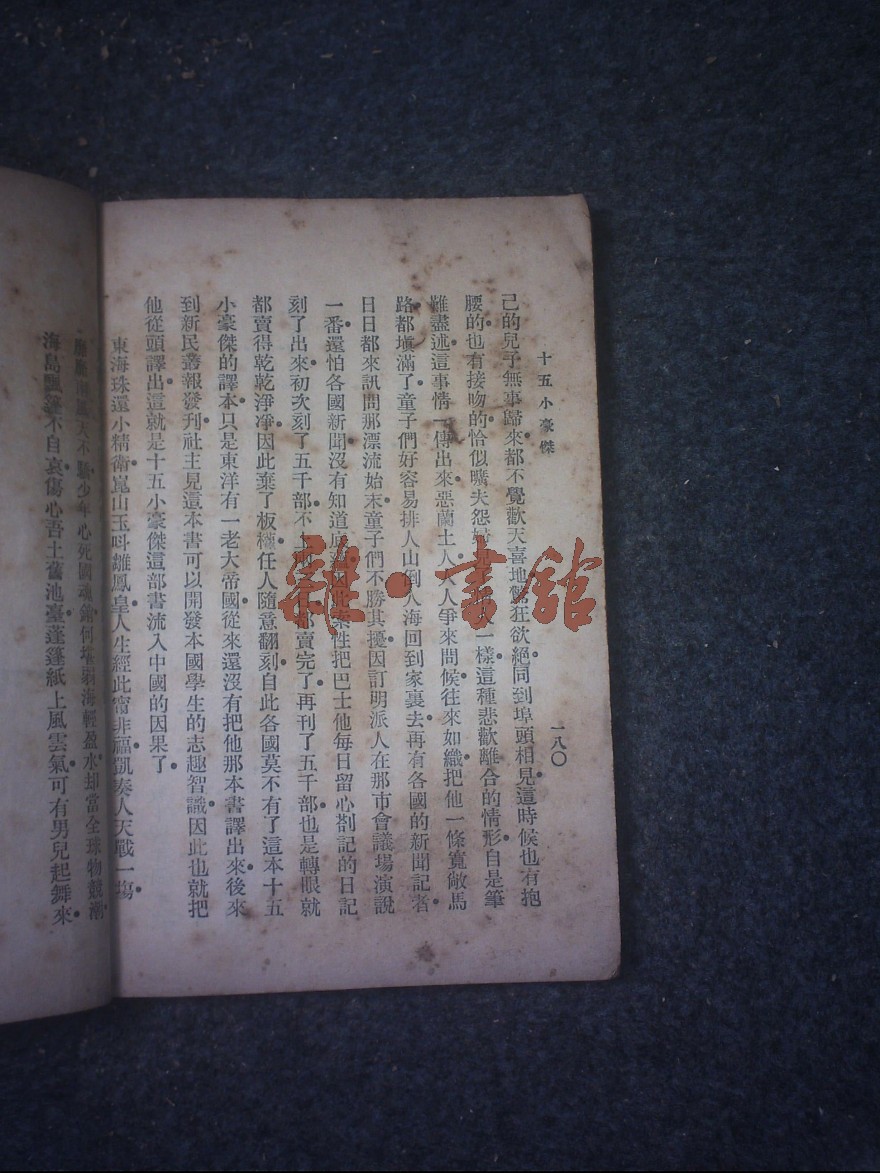 十五小豪傑
一八〇
己的兒子無事歸來都不覺歡天喜地驚狂欲絕同到埠頭相見這時候也有抱
腰的也有接吻的恰似曠夫怨婦一樣這種悲歡離合的情形自是筆
難盡述這事情一傳出來惡蘭土人人人爭來問候往來如織把他一條寬敞馬
路都塡滿了童子們好容易排人山倒人海回到家裏去再有各國的新聞記者
日日都來訊問那漂流始末童子們不勝其擾因訂明派人在那市會議場演說
一番還怕各國新聞沒有知道底因此索性把巴士他每日留心劄記的日記
刻了出來初次刻了五千部不上都賣完了再刊了五千部也是轉眼就
都賣得乾乾淨凈因此棄了板權任人隨意翻刻自此各國莫不有了這本十五
小豪傑的譯本只是東洋有一老大帝國從來還沒有把他那本書譯出來後來
到新民叢報發刊社主見這本書可以開發本國學生的志趣智識因此也就把
他從頭譯出這就是十五小豪傑這部書流入中國的因果了
東海珠還小精衛崑山玉呌雛鳳皇人生經此甯非福凱奏人天戰一塲
少年心死國魂銷何堪弱海輕盈水却當全球物競潮
海島飄篷不自哀傷心吾土舊池臺蓬蓬紙上風雲氣可有男兒起舞來
雜·書館